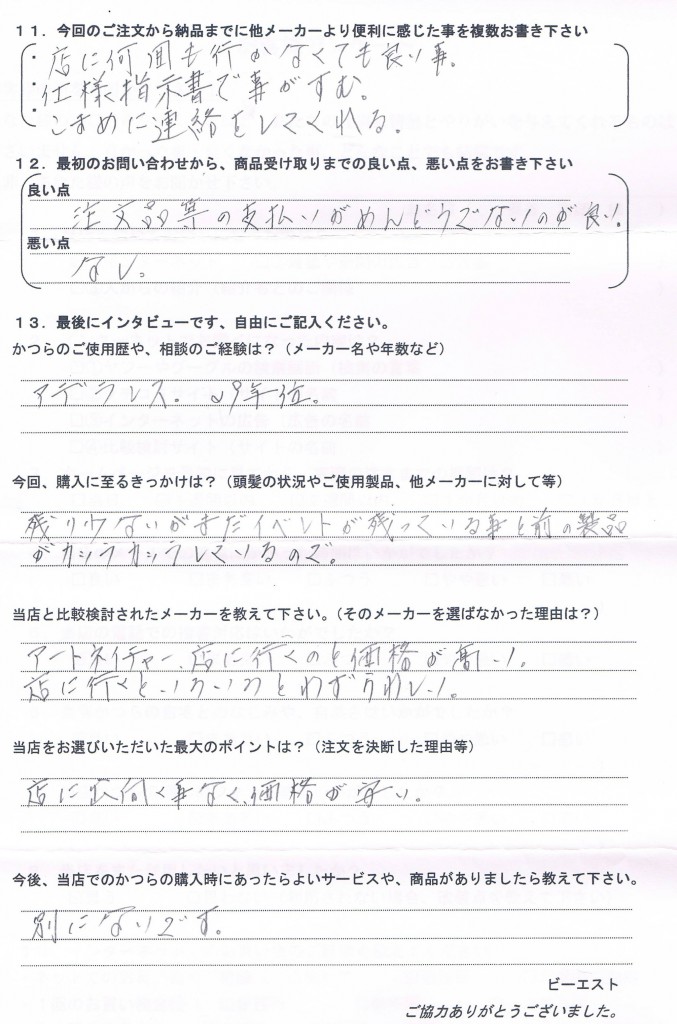 11．今回のご注文から納品までに他メーカーより便利に感じた事を複数お書き下さい
・店に何回も行かなくても良い事。
・仕様指示書で事がすむ。
・こまめに連絡をしてくれる。
12．最初のお問い合わせから、商品受け取りまでの良い点、悪い点をお書き下さい
良い点
注文品等の支払いがめんどうでないのが良い！
悪い点
なし。
13．最後にインタビューです、自由にご記入ください。
かつらのご使用歴や、相談のご経験は？（メーカー名や年数など）
アデランス。 9年位。
今回、購入に至るきっかけは？（頭髪の状況やご使用製品、他メーカーに対して等）
残り少ないがまだイベントが残っている事と前の製品
がカツラカツラしているので。
当店と比較検討されたメーカーを教えて下さい。（そのメーカーを選ばなかった理由は？）
アートネイチャー、店に行くのと価格が高い。
店に行くといろいろとわずらわしい。
当店をお選びいただいた最大のポイントは？（注文を決断した理由等）
店に出向く事なく、価格が安い。
今後、当店でのかつらの購入時にあったらよいサービスや、商品がありましたら教えて下さい。
別にないです。
ビーエスト
ご協力ありがとうございました。